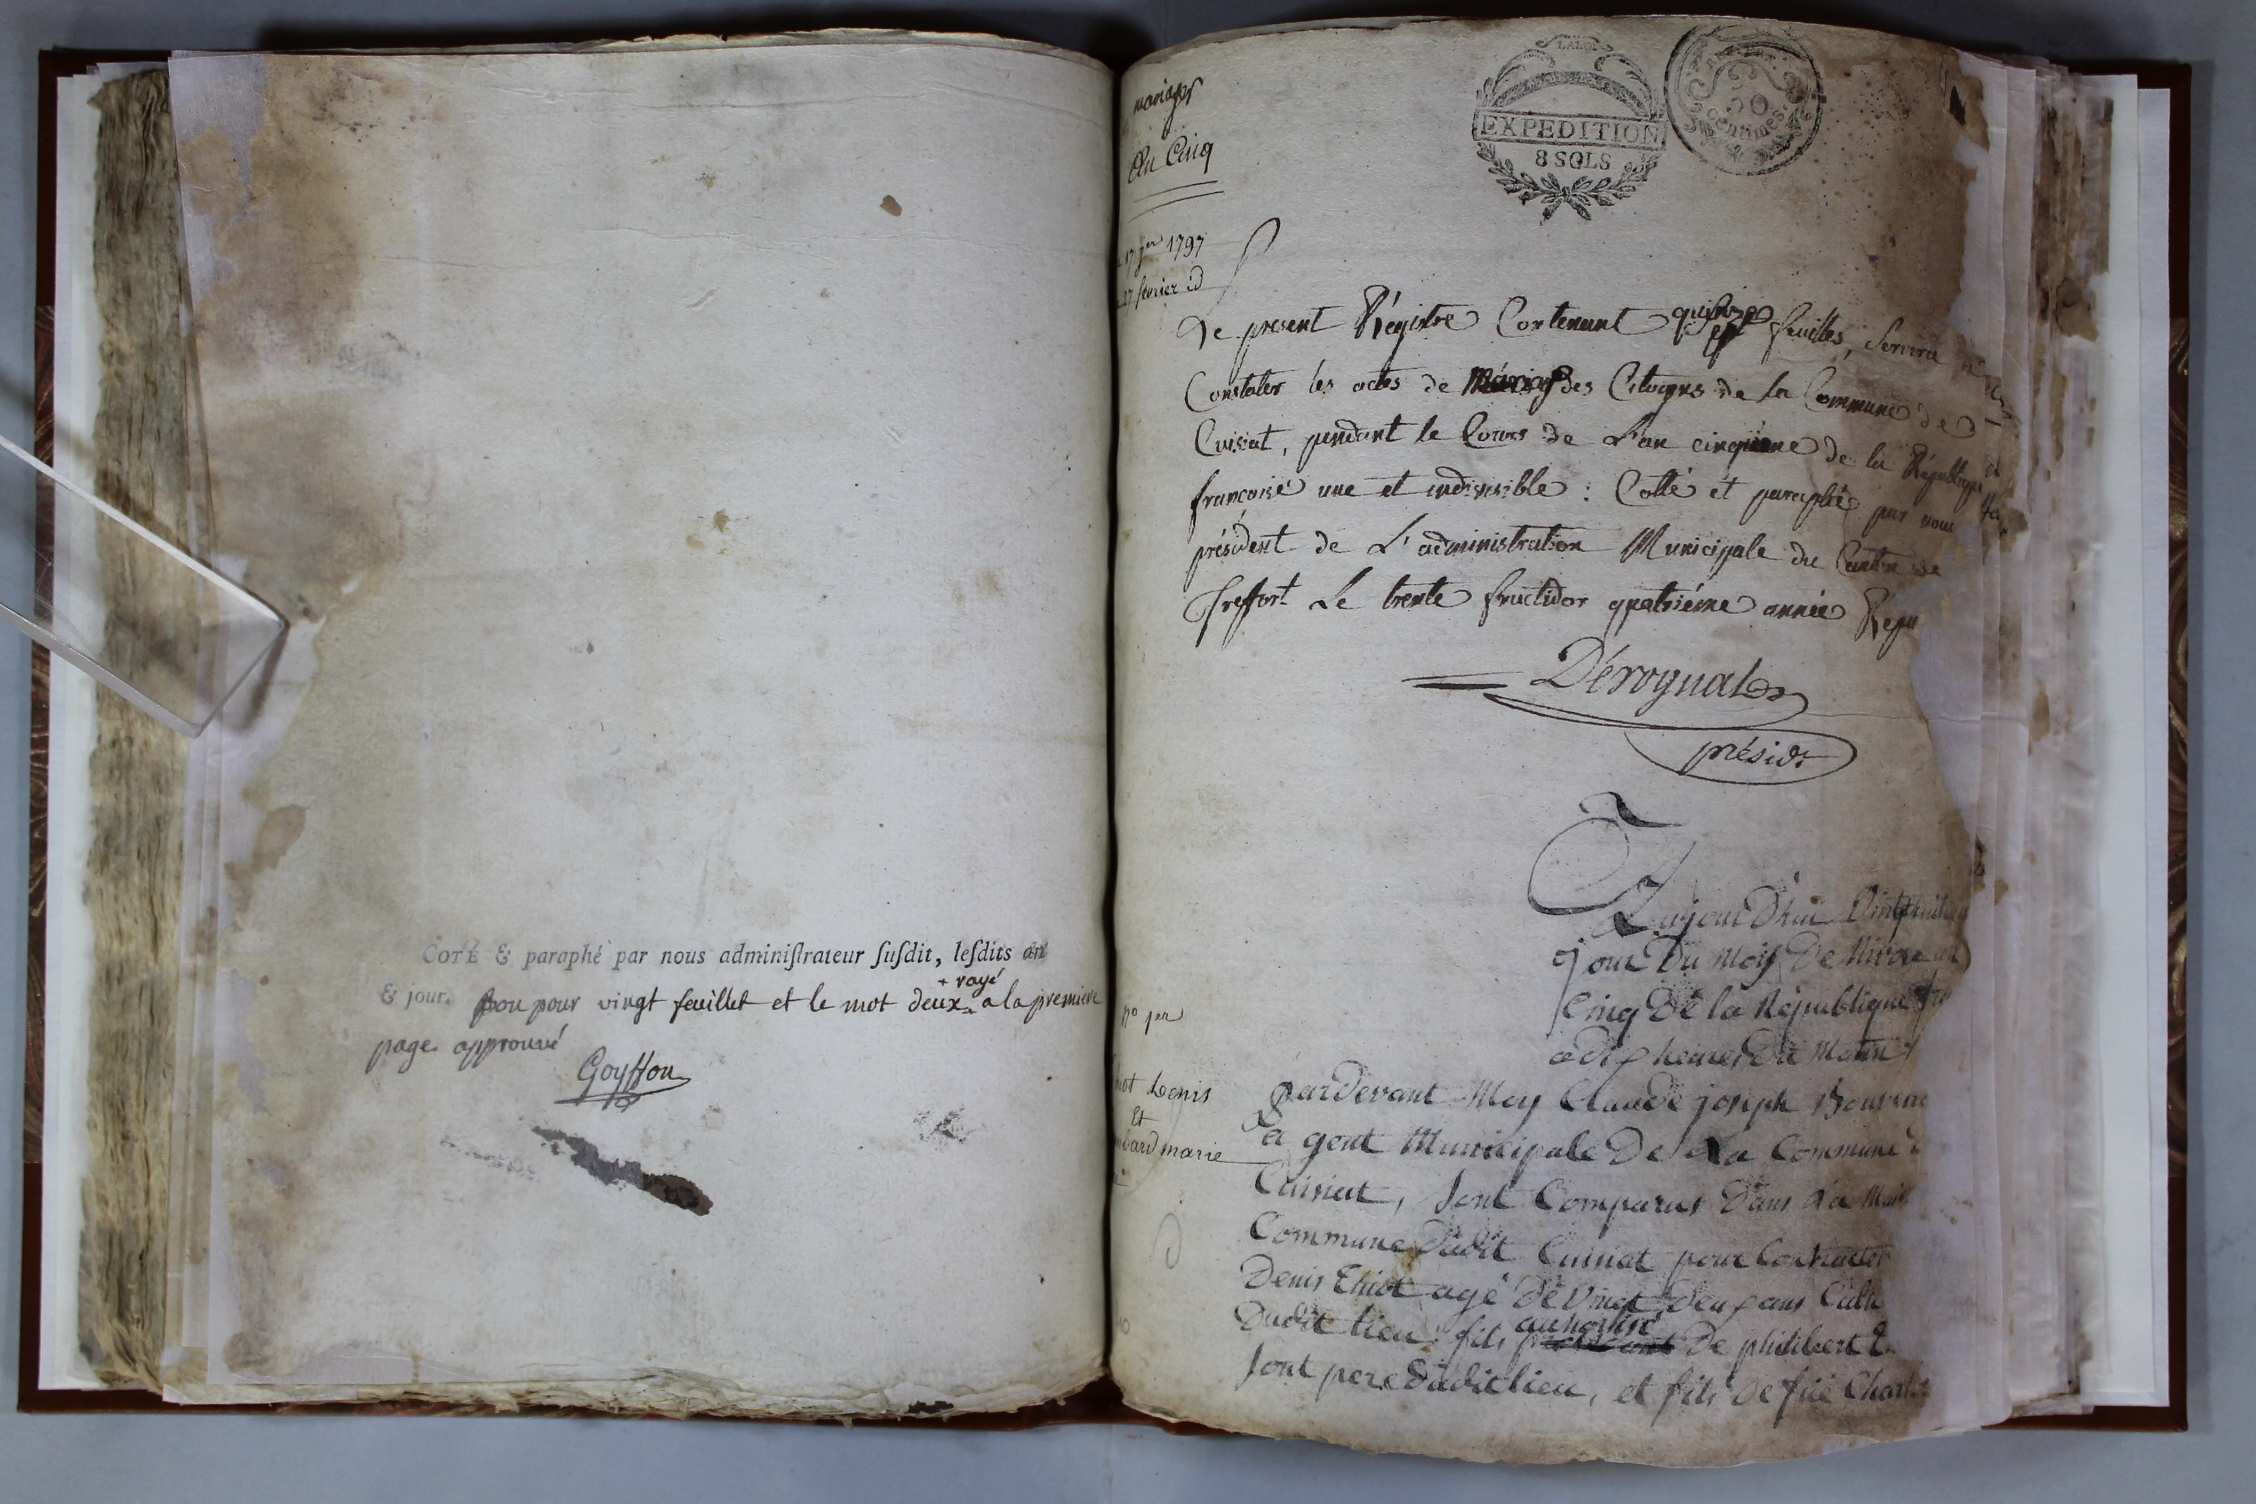 COTÉ & paraphé par nous administrateur susdit, lesdits an
& jour. bon pour vingt feuillet et le mot deux + rayé a la premiere
page approuvé
Goyffon
mariages
An Cinq
17 jer 1797
27 fevrier id
EXPEDITION
8 SOLS
50
centimes
Le present Régistre Contenant feuilles, Servira
Constater les actes de Mariage des Citoyens de la Commune de
Cuisiat, pendant le Cours de L'an cinquiéme de la République
françoise une et indivisible : Cotté et paraphé par nous
président de L'administration Municipale du Canton de
Treffort Le trente fructidor quatriéme année Répu
Dérognat
présidt
Aujourd'hui Vingthuit
jour Du Mois De Nivose an
Cinq De la République fr
a dix heures Du Matin
pardevant Moy Claude joseph
agent Municipale De La Commune
Cuisiat, Sont Comparus Dans La Mais
Commune Dudit Cuisiat pour Contracter
Denis Thiot agé De Vingt Deux ans Cult
Dudit lieu fils authorisé De philibert
Sont pere Dudit lieu, et fils De fue Charl
No jer
Denis
Et
marie